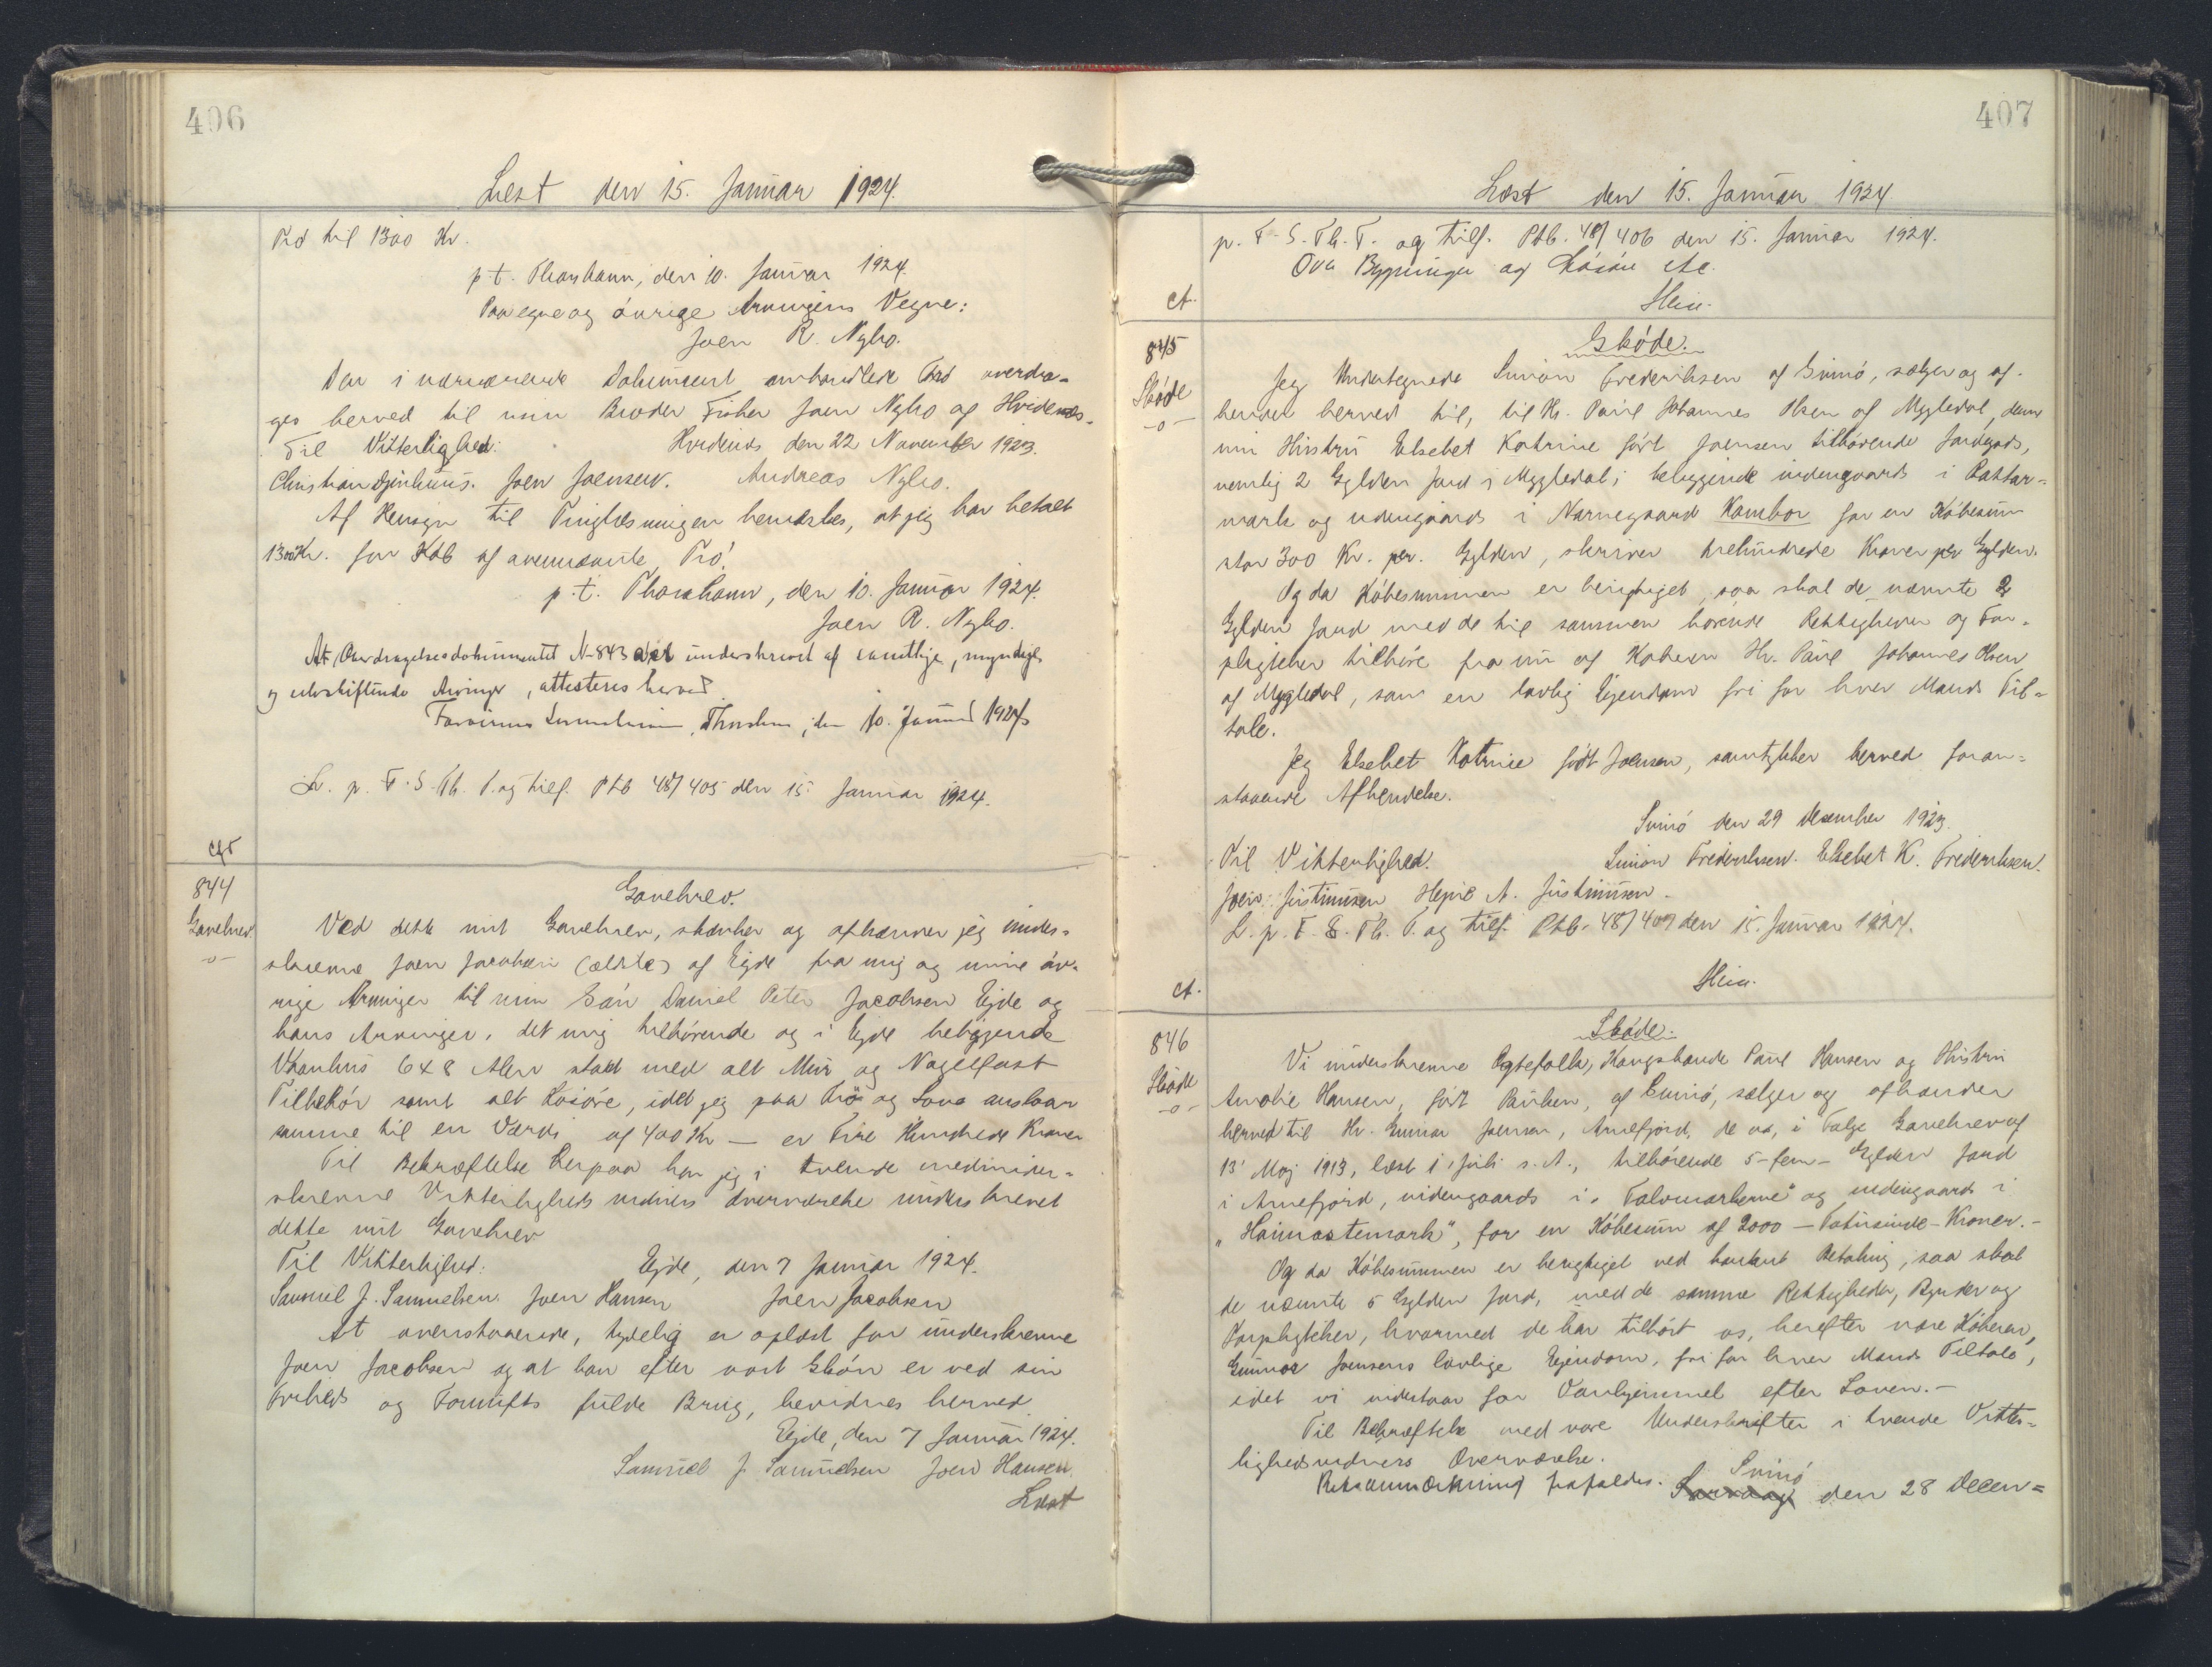 406
Læst den 15. Januar 1924.
Trö til 1300 Kr.
p.t. Thorshavn, den 10. Januar 1924.
Paa egne og övrige Arvingers Vegne:
Joen R. Nybo.
Den i nærværende Dokument omhandlede Trö overdra-
ges herved til min Broder Fisker Joen Nybo af Hvidenæs.
Til Vitterlighed: Hvidenæs den 22 November 1923.
Christian Djurhuus. Joen Joensen. Andreas Nybo.
Af Hensyn til Tinglæsningen bemærkes, at jeg har betalt
1300 Kr. for Köb af ovennævnte Trö.
p.t. Thorshavn, den 10. Januar 1924.
Joen R. Nybo.
At Overdragelsesdokumentet N-843 er underskrevet af samtlige, myndige
og selvskiftende Arvinger, attesteres herved
Færøernes Thorshavn, den 10. Januar 1924
L. p. F. S. Th. T. og tilf. Ptb 48/405 den 15. Januar 1924.
844
Gavebrev
-o-
Gavebrev.
Ved dette mit Gavebrev, skænker og afhænder jeg under-
skrevne Joen Jacobsen (ældste) af Ejde fra mig og mine öv-
rige Arvinger til min Sön Daniel Peter Jacobsen Ejde og
hans Arvinger, det mig tilhörende og i Ejde beliggende
Vaanhus 6 x 8 Alen stort med alt Mur og Nagelfast
Tilbehör samt alt Lösöre, idet jeg paa Tro og Love ansætter
samme til en Værdi af 400 Kr — er Fire Hundrede Kroner
Til Bekræftelse herpaa har jeg i tvende medunder-
skrevne Vitterligheds vidners Overværelse underskrevet
dette mit Gavebrev
Til Vitterlighed: Ejde, den 7 Januar 1924.
Samuel J. Samuelsen Joen Hansen Joen Jacobsen
At ovenstaaende, tydelig er oplæst for underskrevne
Joen Jacobsen og at han efter vort Skön er ved sin
Friheds og Fornufts fulde Brug, bevidnes herved
Ejde, den 7 Januar 1924.
Samuel J. Samuelsen Joen Hansen.
Læst
407
Læst den 15. Januar 1924.
p. F. S. Th. T. og tilf. Ptb. 48/406 den 15. Januar 1924.
Ova Bygninger og Lösöre etc.
ct.
Hein.
845
Sköde
-o-
Sköde.
Jeg Undertegnede Simon Frederiksen af Svinö, sælger og af-
hænder herved til, til Hr. Poul Johannes Olsen af Mygledal, denne
min Hustru Elsebet Katrine födt Joensen tilhörende Jordgods,
nemlig 2 Gylden Jord i Mygledal; beliggende indengaards i Rattar-
mark og udengaards i Narnegaard Kambor for en Köbesum
stor 300 Kr. per. Gylden, skriver trehundrede Kroner per Gylden.
Og da Köbesummen er berigtiget, saa skal de nævnte 2
Gylden Jord med de til sammen hörende Rettigheder og For-
pligtelser tilhöre fra nu af Köberen Hr. Poul Johannes Olsen
af Mygledal, som en lovlig Ejendom fri for hver Mands Til-
tale.
Jeg Elsebet Katrine födt Joensen, samtykker herved foran-
staaende Afhændelse.
Svinö den 29 December 1923.
Til Vitterlighed. Simon Frederiksen. Elsebet K. Frederiksen.
Joen Justinusen A. Justinusen.
L. p. F. S. Th. T. og tilf. Ptb. 48/407 den 15. Januar 1924.
ct.
Hein.
846
Sköde
-o-
Sköde.
Vi underskrevne Ægtefolk, Kongsbonde Poul Hansen og Hustru
Amalie Hansen, födt Paulsen, af Svinö, sælger og afhænder
herved til Hr. Gunnar Joensen, Arnefjord, de os, i Følge Gavebrev af
13' Maj 1913, læst 1' Juli s. A., tilhörende 5-fem- Gylden Jord
i Arnefjord, indengaards i "Talvmarkerne" og udengaards i
"Haimastemark", for en Köbesum af 2000 — Totusinde - Kroner.-
Og da Köbesummen er berigtiget ved kontant Betaling, saa skal
de nævnte 5 Gylden Jord, med de samme Rettigheder, Byrder og
Forpligtelser, hvormed de har tilhört os, herefter være Köberen,
Gunnar Joensens lovlige Ejendom, fri for hver Mands Tiltale,
idet vi indestaar for Vanhjemmel efter Loven.-
Til Bekræftelse med vore Underskrifter i tvende Vitter-
lighedsvidners Overværelse.
Retsanmærkning frafaldes. Svinö den 28 Decem-